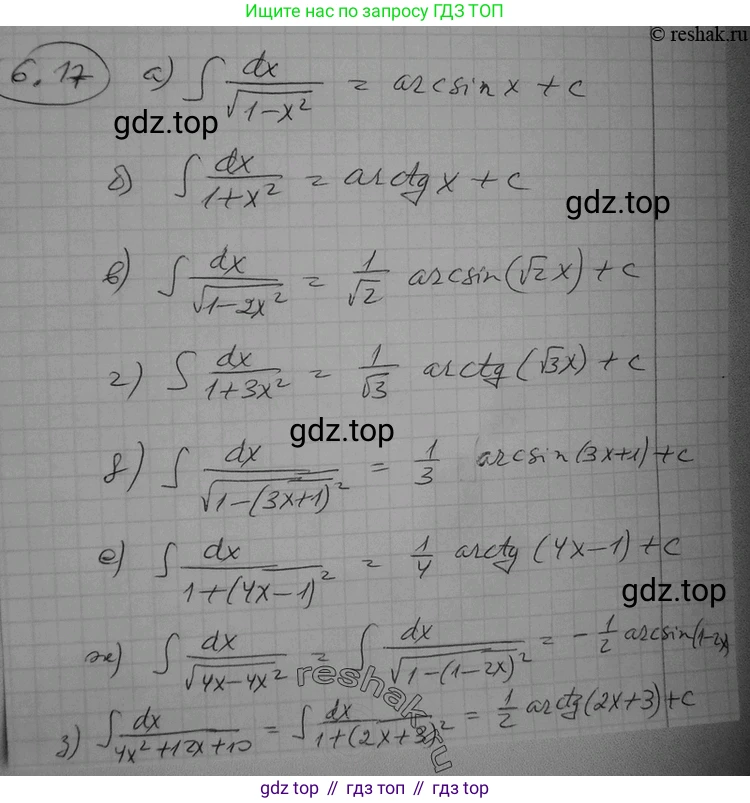 Ищите нас по запросу ГДЗ ТОП
© reshak.ru
6.17 а) ∫ dx/√(1-x²) = arcsin x + c
gdz.top
б) ∫ dx/(1+x²) = arctg x + c
gdz.top
в) ∫ dx/√(1-2x²) = 1/√2 arcsin(√2 x) + c
г) ∫ dx/(1+3x²) = 1/√3 arctg(√3x) + c
gdz.top
д) ∫ dx/√(1-(3x+1)²) = 1/3 arcsin(3x+1) + c
е) ∫ dx/(1+(4x-1)²) = 1/4 arctg(4x-1) + c
gdz.top
ж) ∫ dx/√(4x-4x²) = ∫ dx/√(1-(1-2x)²) = -1/2 arcsin(1-2x)
reshak.ru
з) ∫ dx/(4x²+12x+10) = ∫ dx/(1+(2x+3)²) = 1/2 arctg(2x+3) + c
gdz.top // гдз.топ // gdz.top // гдз.топ